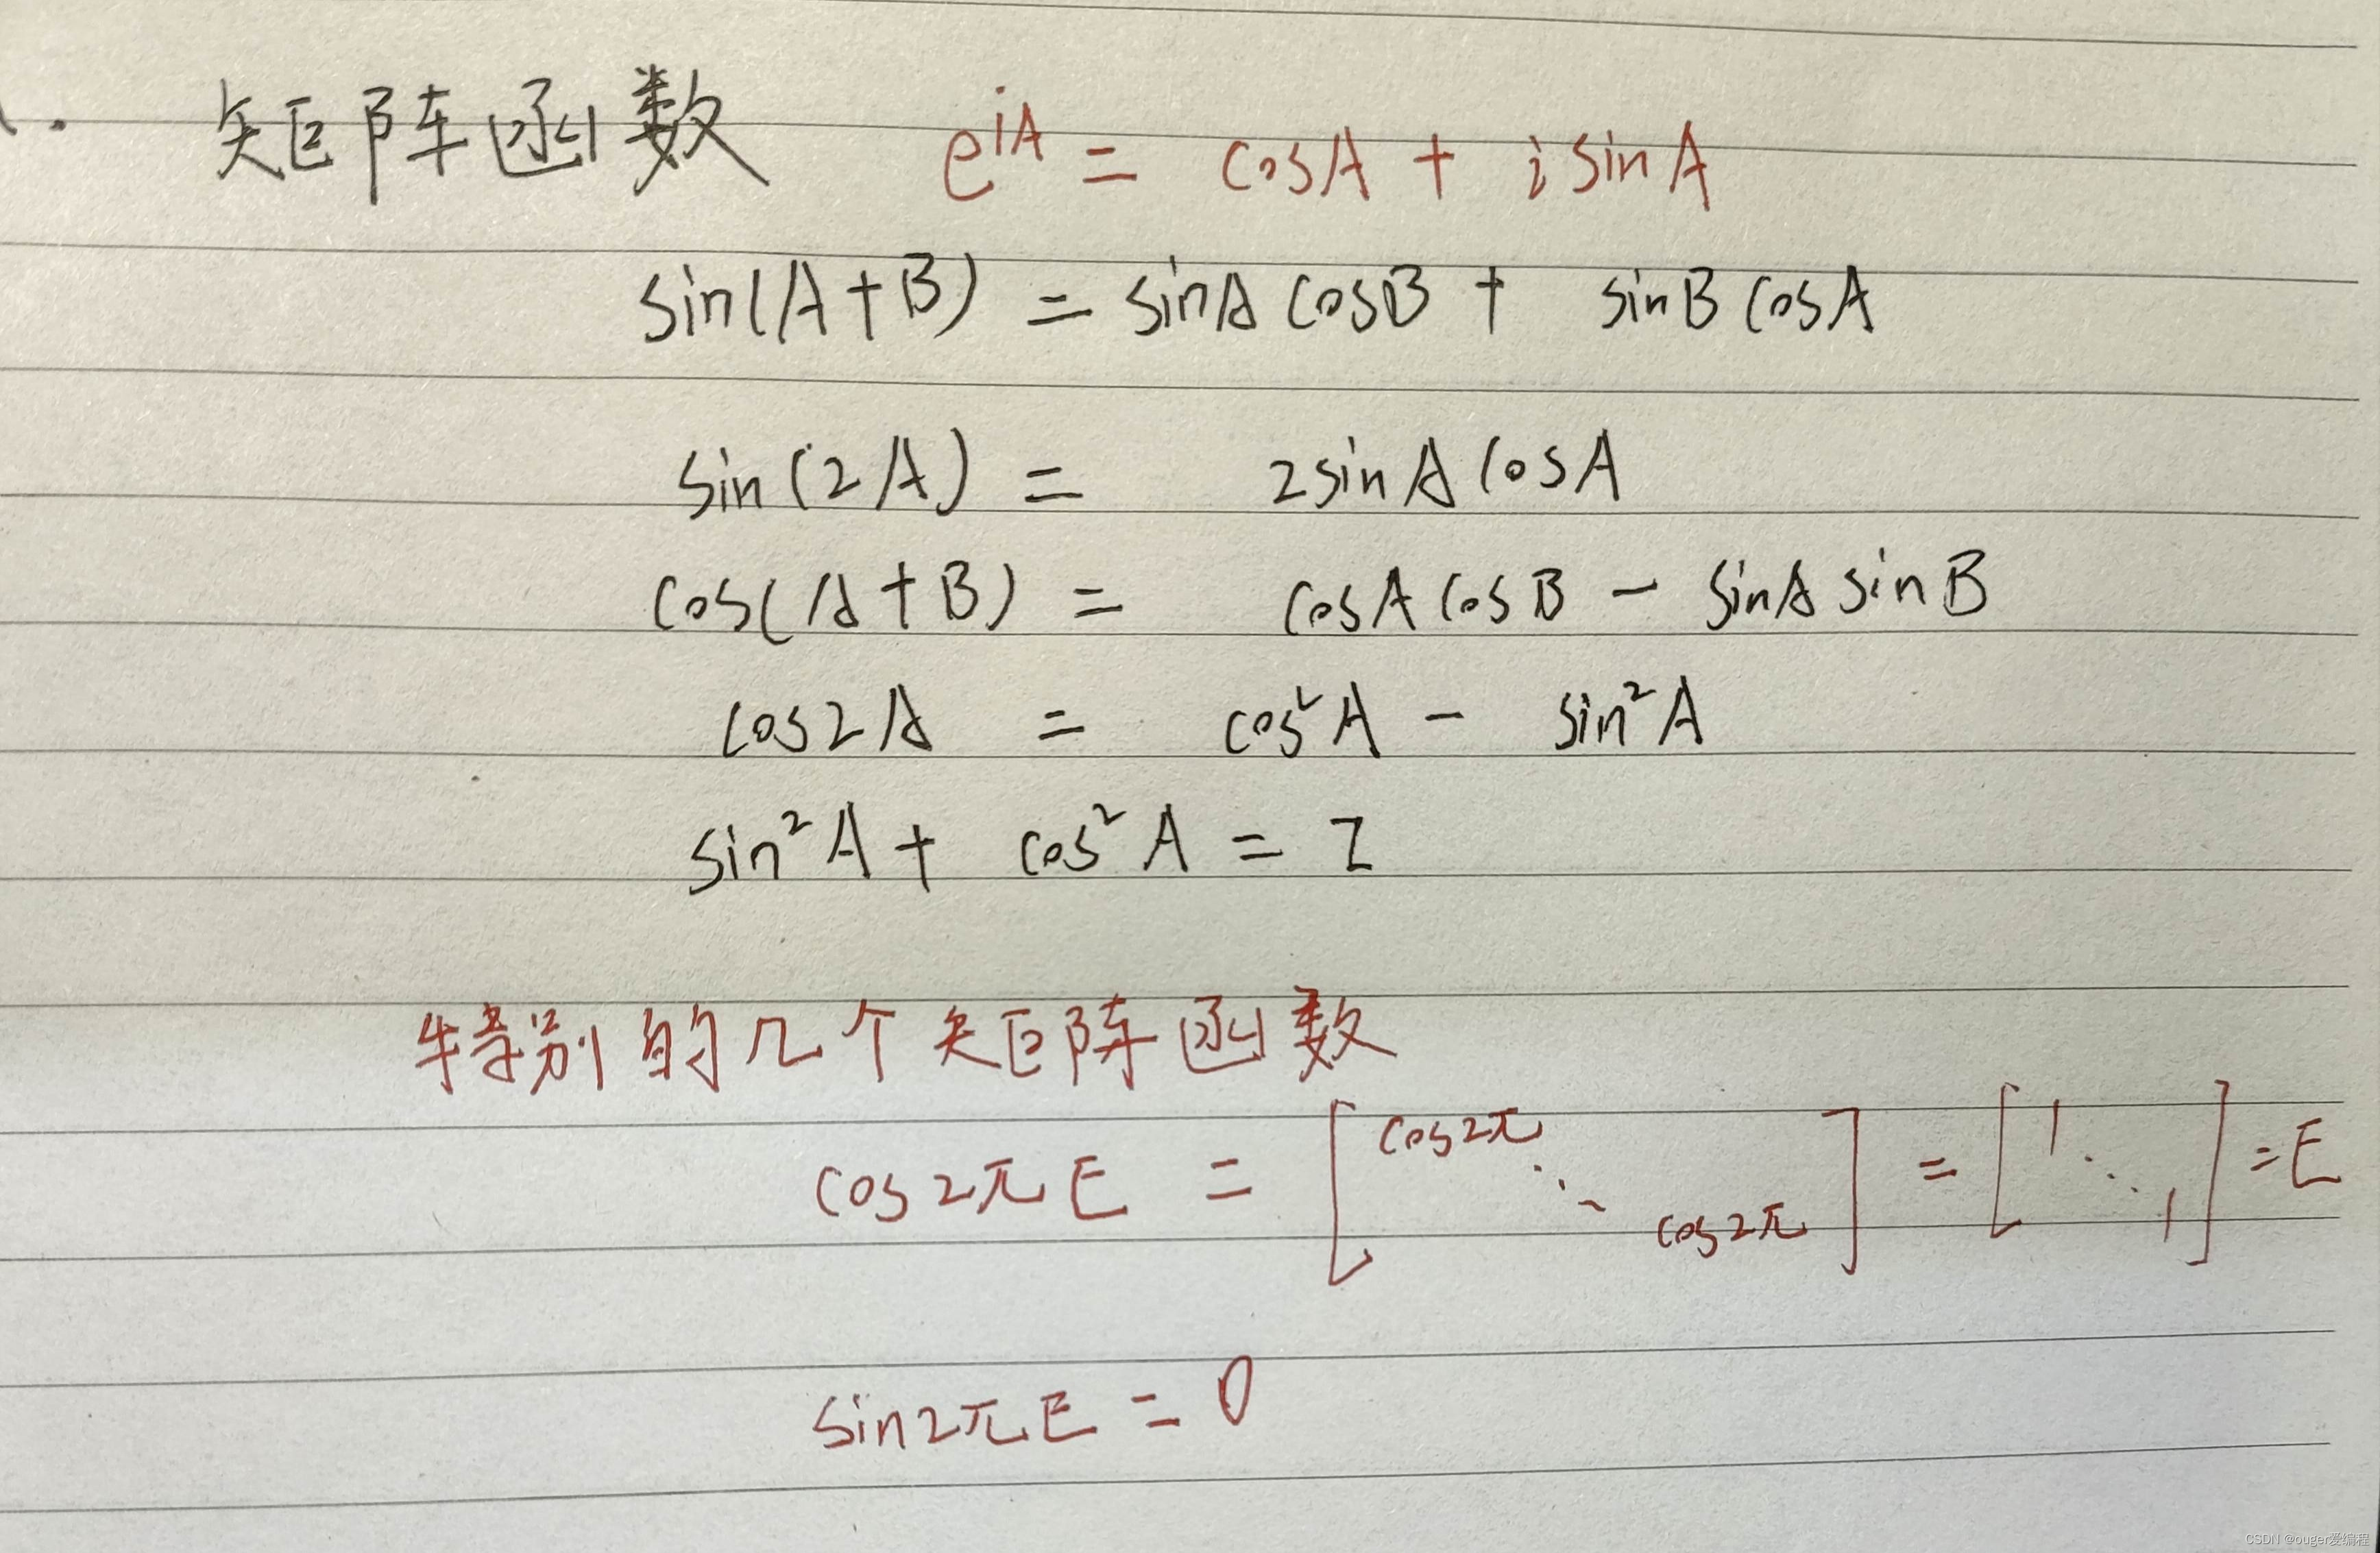 矩阵函数 e^{iA} = cosA + i sinA
sin(A+B) = sinA cosB + sinB cosA
sin(2A) = 2sinA cosA
cos(A+B) = cosA cosB - sinA sinB
cos2A = cos²A - sin²A
sin²A + cos²A = I
特别的几个矩阵函数
cos2πE = [cos2π ⋱ cos2π] = [1 ⋱ 1] = E
sin2πE = 0
CSDN @ouger爱编程